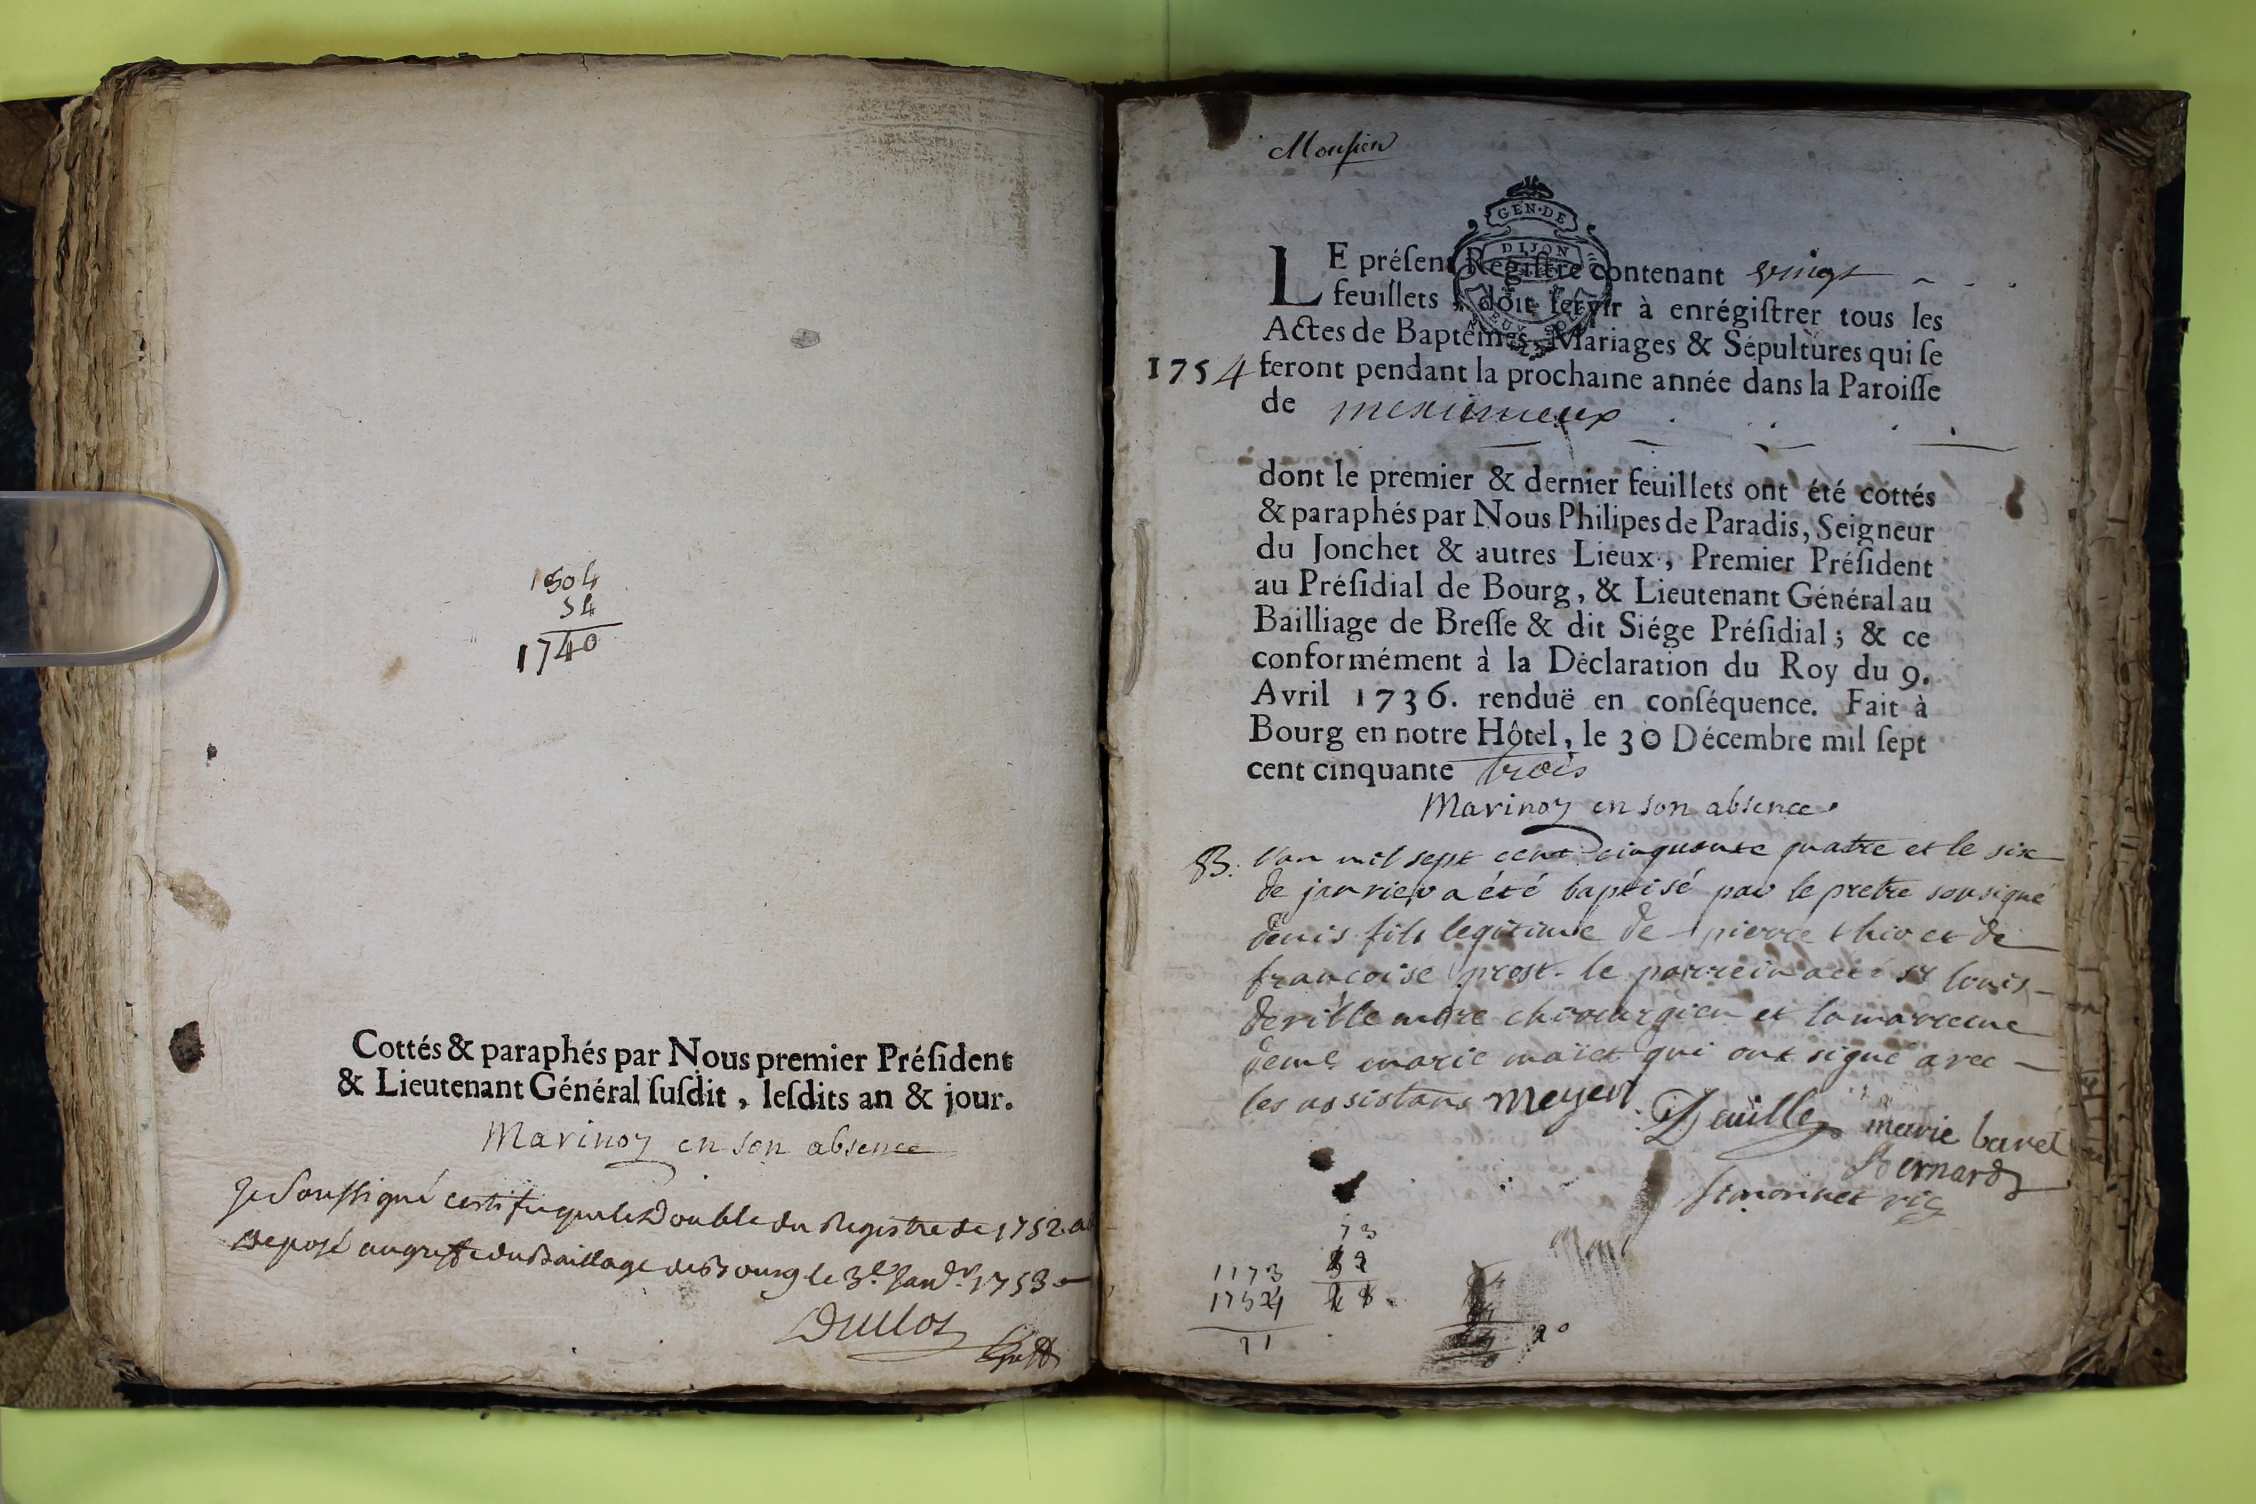 1504
54
1740
Cottés & paraphés par Nous premier Préſident
& Lieutenant Général ſuſdit, leſdits an & jour.
Marinoz en son absence
Je Soussigné certifie que le Double du Registre de 1752 a
deposé au greffe du Baillage de Bourg le 3e Janvr 1753
Monsieu
GEN·DE
DIJON
LE préſent Regiſtre contenant vingt
feuillets, doit ſervir à enrégiſtrer tous les
Actes de Baptêmes, Mariages & Sépultures qui ſe
1754 feront pendant la prochaine année dans la Paroiſſe
de meximieux
dont le premier & dernier feuillets ont été cottés
& paraphés par Nous Philipes de Paradis, Seigneur
du Jonchet & autres Lieux, Premier Préſident
au Préſidial de Bourg, & Lieutenant Général au
Bailliage de Breſſe & dit Siége Préſidial; & ce
conformément à la Déclaration du Roy du 9.
Avril 1736. renduë en conſéquence. Fait à
Bourg en notre Hôtel, le 30 Décembre mil ſept
cent cinquante trois
Marinoz en son absence.
B. l'an mil sept cent cinquante quatre et le six
de janvier a été baptisé par le pretre sousigné
denis fils legitime de pierre thio et de
francoise prost. le parrein a été sr louis
deville mtre chirurgien et la marreine
demlle marie maiet qui ont signé avec
les assistans meyer
Deville marie baret
Bernard
Simonnet vic
73
1173
1754
21
20